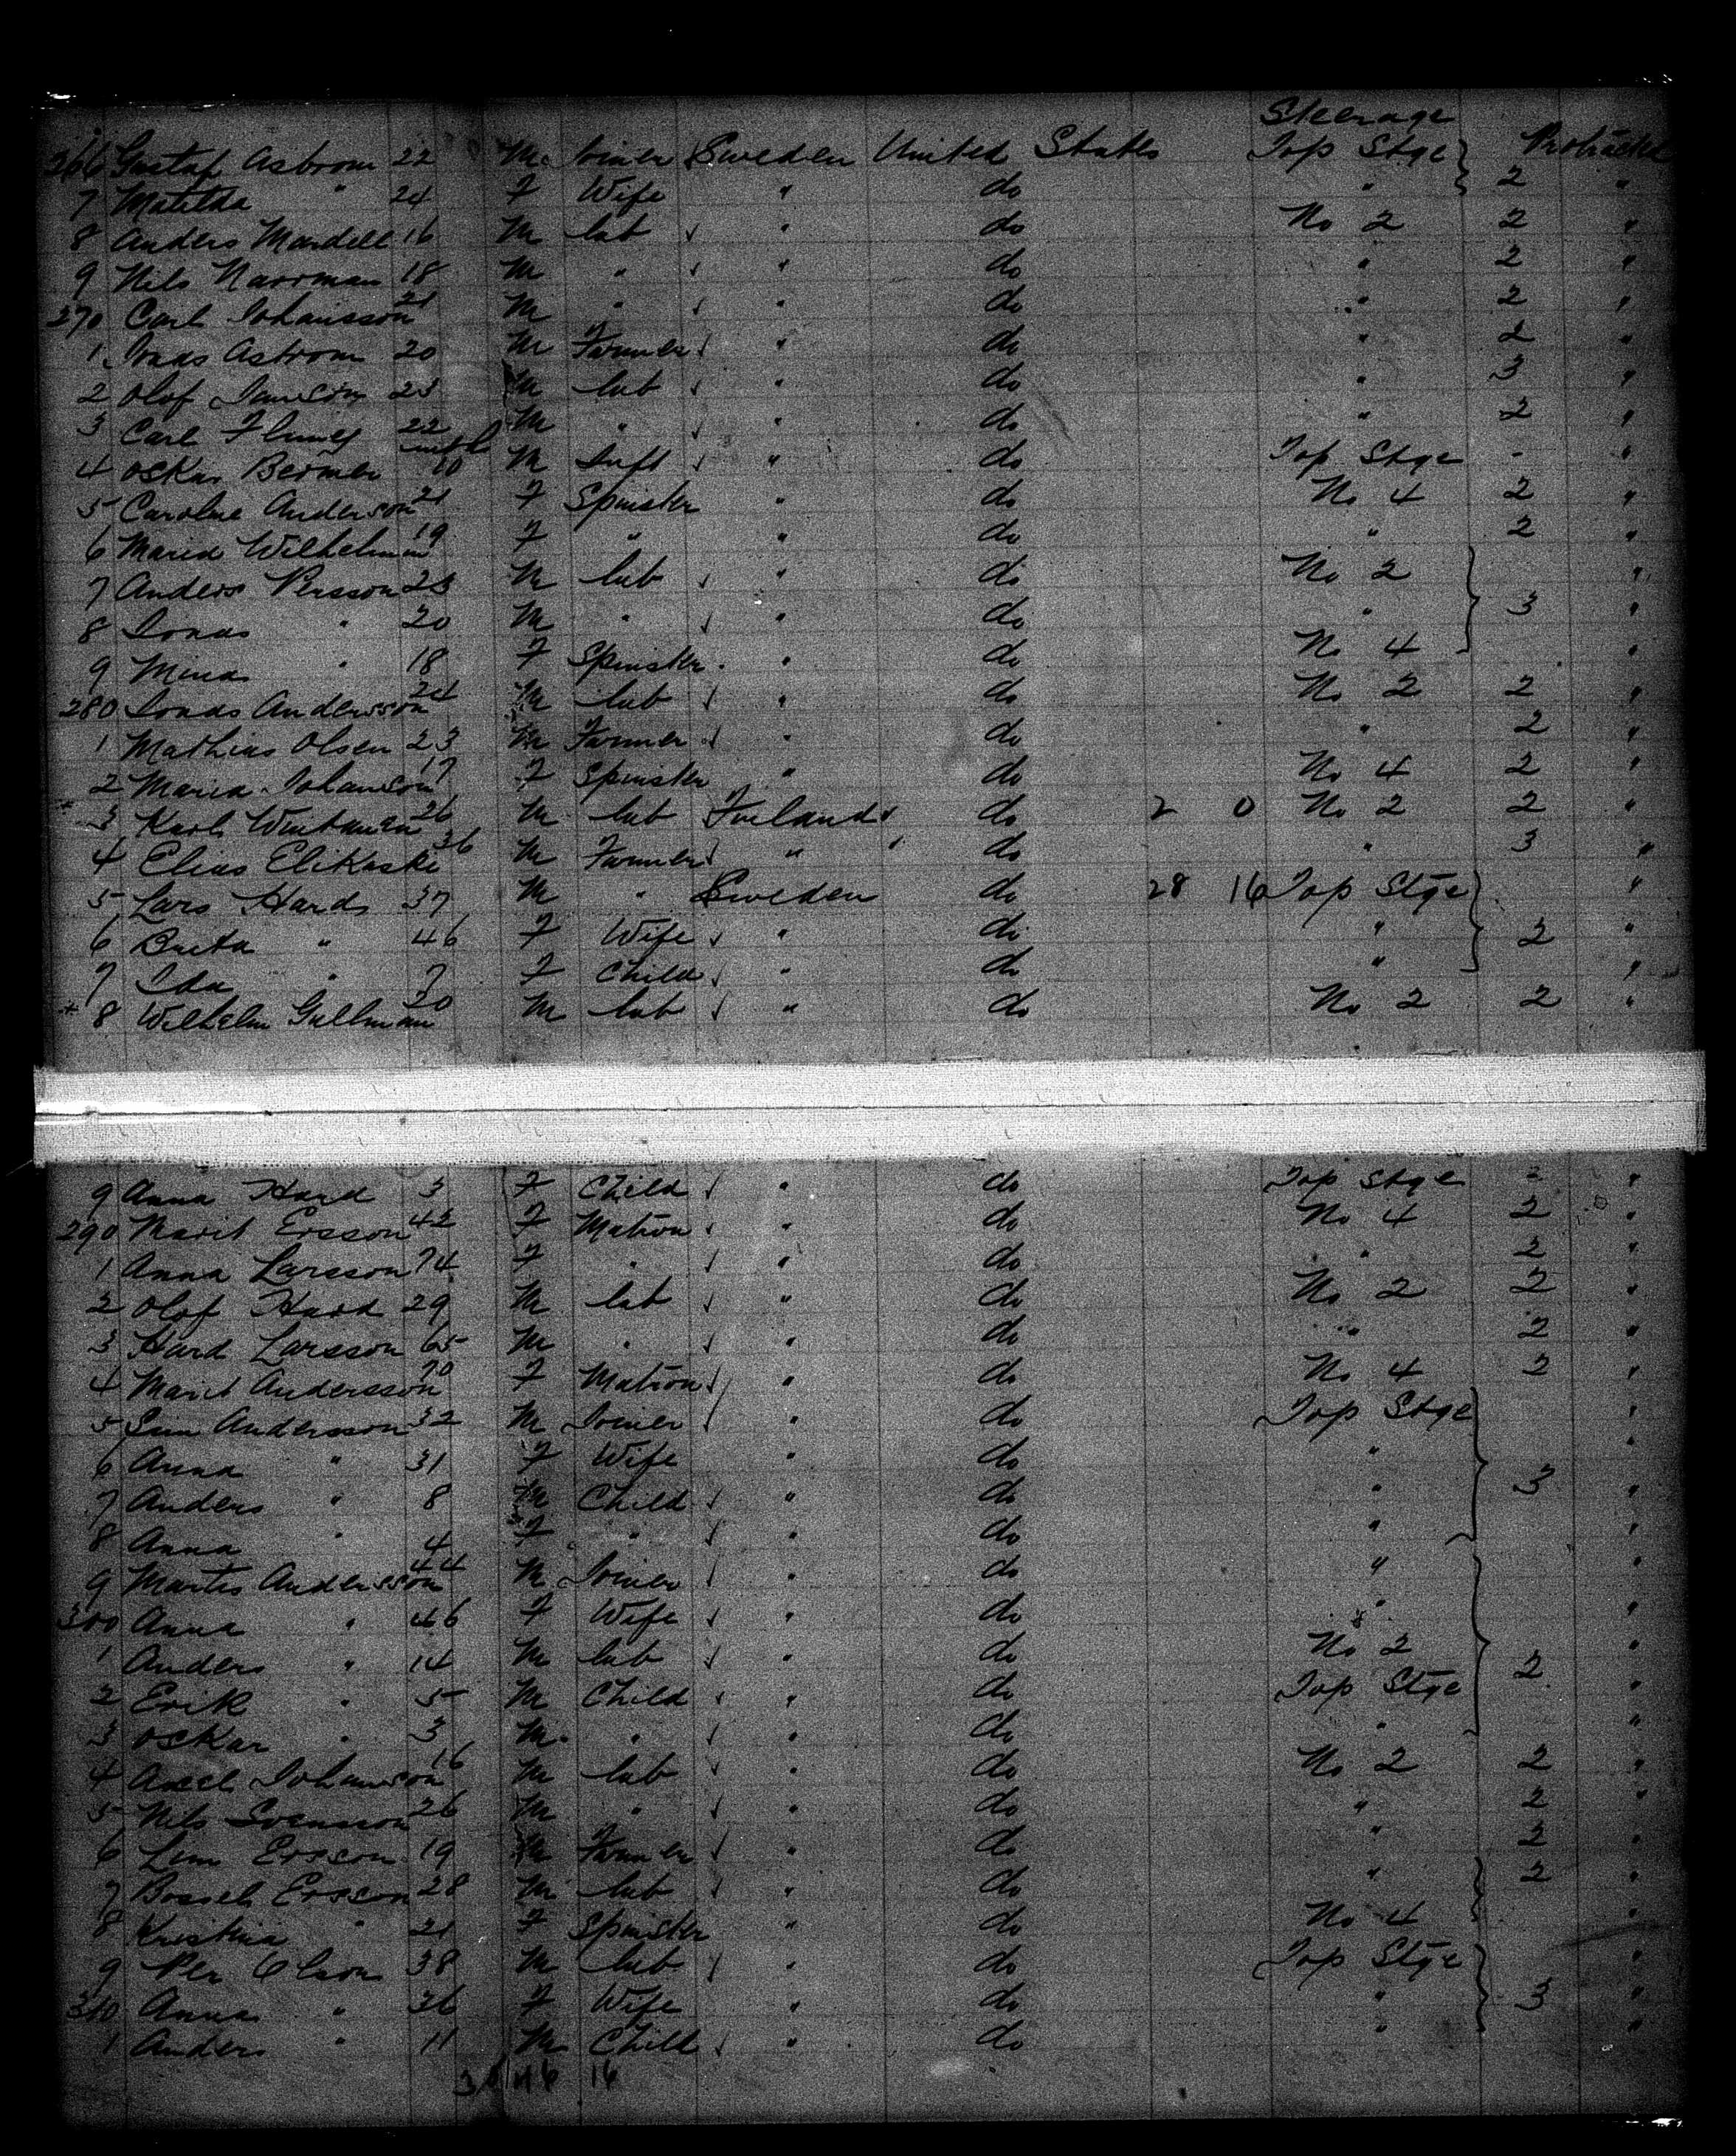 Steerage
266 Gustaf Asbrom 22 M Joiner Sweden United States Top Stge Protracted
7 Matilda " 24 F Wife " do " 2 "
8 Anders Mardell 16 M lab " do No 2 2 "
9 Nils Narrman 18 M " " do " 2 "
270 Carl Johansson 21 M " " do " 2 "
1 Jonas Astrom 20 M Farmer " do " 2 "
2 Olof 23 M lab " do " 3 "
3 Carl 22 M " " do " 2 "
4 Oskar Bermer 10 M Inft " do Top Stge - "
5 Caroline Anderson 21 F Spinster " do No 4 2 "
6 Maria 19 F " " do " 2 "
7 Anders Persson 23 M lab " do No 2 "
8 Jonas " 20 M " " do " 3 "
9 Mina " 18 F Spinster " do No 4 "
280 Jonas Andersson 24 M lab " do No 2 2 "
1 Mathias Olsen 23 M Farmer " do " 2 "
2 Maria Johanson 17 F Spinster " do No 4 2 "
3 Karl 26 M lab Finland do 2 0 No 2 2 "
4 Elias Elikaske 36 M Farmer " do " 3 "
5 Lars Hards 37 M " Sweden do 28 16 Top Stge "
6 Brita " 46 F Wife " do " 2 "
7 Ida " 7 F Child " do " "
8 Wilhelm Gullman 20 M lab " do No 2 2 "
9 Anna Hard 3 F Child " do Top Stge 2 "
290 Marit Ersson 42 F Matron " do No 4 2 "
1 Anna Larsson 74 F " " do " 2 "
2 Olof Hard 29 M lab " do No 2 2 "
3 Hard Larsson 65 M " " do " 2 "
4 Marit Andersson 70 F Matron " do No 4 2 "
5 Andersson 32 M Joiner " do Top Stge "
6 Anna " 31 F Wife " do " "
7 Anders " 8 M Child " do " 3 "
8 Anna " 4 F " " do " "
9 Martis Andersson 44 M Joiner " do " "
300 Anna " 46 F Wife " do " "
1 Anders " 14 M lab " do No 2 2 "
2 Erik " 5 M Child " do Top Stge "
3 Oskar " 3 M " " do " "
4 Axel Johanson 16 M lab " do No 2 2 "
5 Nils Svensson 26 M " " do " 2 "
6 Ersson 19 M Farmer " do " 2 "
7 Ersson 28 M lab " do " 2 "
8 Kristina " 21 F Spinster " do No 4 "
9 Per Olson 38 M lab " do Top Stge "
310 Anna " 36 F Wife " do " 3 "
1 Anders " 11 M Child " do " "
16